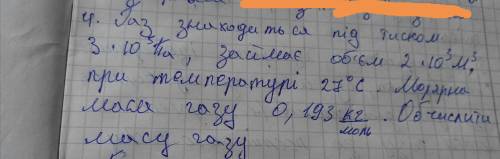 4. Газ знаходиться під тиском
3 · 10⁵ Па, займає об'єм 2 · 10³ м³,
при температурі 27°C. Молярна
маса газу 0,193 кг/моль. Обчислити
масу газу